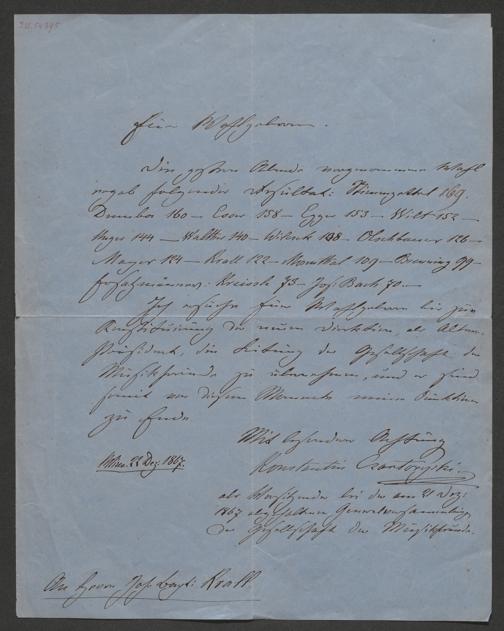 Euer Wohlgeboren.
Die gestern Abends vorgenommene Wahl
ergab folgendes Resultat: Stimmzettel 169.
Dumba 160 — 158 — Egger 153 — Wilt 152 —
Unger 144 — Walther 140 — 138 — 126 —
Mayer 124 — Krall 122 — 109 — Breuning 99 —
Ersatzmänner: 75 — Jos. Bach 70. —
Ich ersuche Euer Wohlgeboren bis zur
Constituirung der neuen Direktion, als Alters-
Präsident, die Leitung der Gesellschaft der
Musikfreunde zu übernehmen, und es sind
somit von diesem Momente meine Funktionen
zu Ende
Mit besonderer Achtung
Wien. 22 Dez. 1867.
Konstantin Czartoryski
als Vorsitzender bei der am 21 Dez.
1867 abgehaltenen Generalversammlung
der Gesellschaft der Musikfreunde.
An Herrn Joh. Bapt. Krall